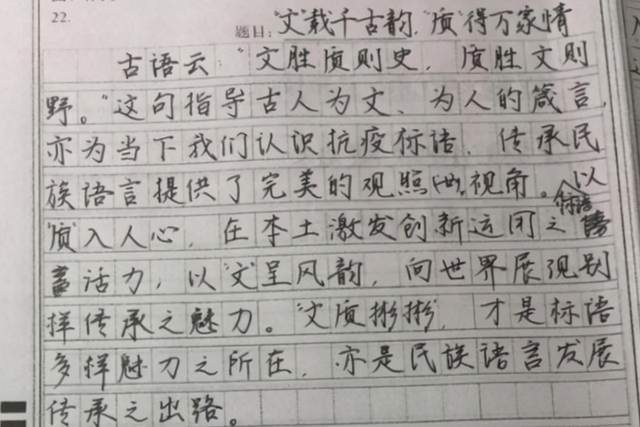 22.
题目:“文”载千古韵,“质”得万家情
古语云:“文胜质则史,质胜文则
野。”这句指导古人为文、为人的箴言,
亦为当下我们认识抗疫标语、传承民
族语言提供了完美的观照视角。以
“质”入人心,在本土激发创新运用之标语
活力,以“文”呈风韵,向世界展现别
样传承之魅力。“文质彬彬”,才是标语
多样魅力之所在,亦是民族语言发展
传承之出路。